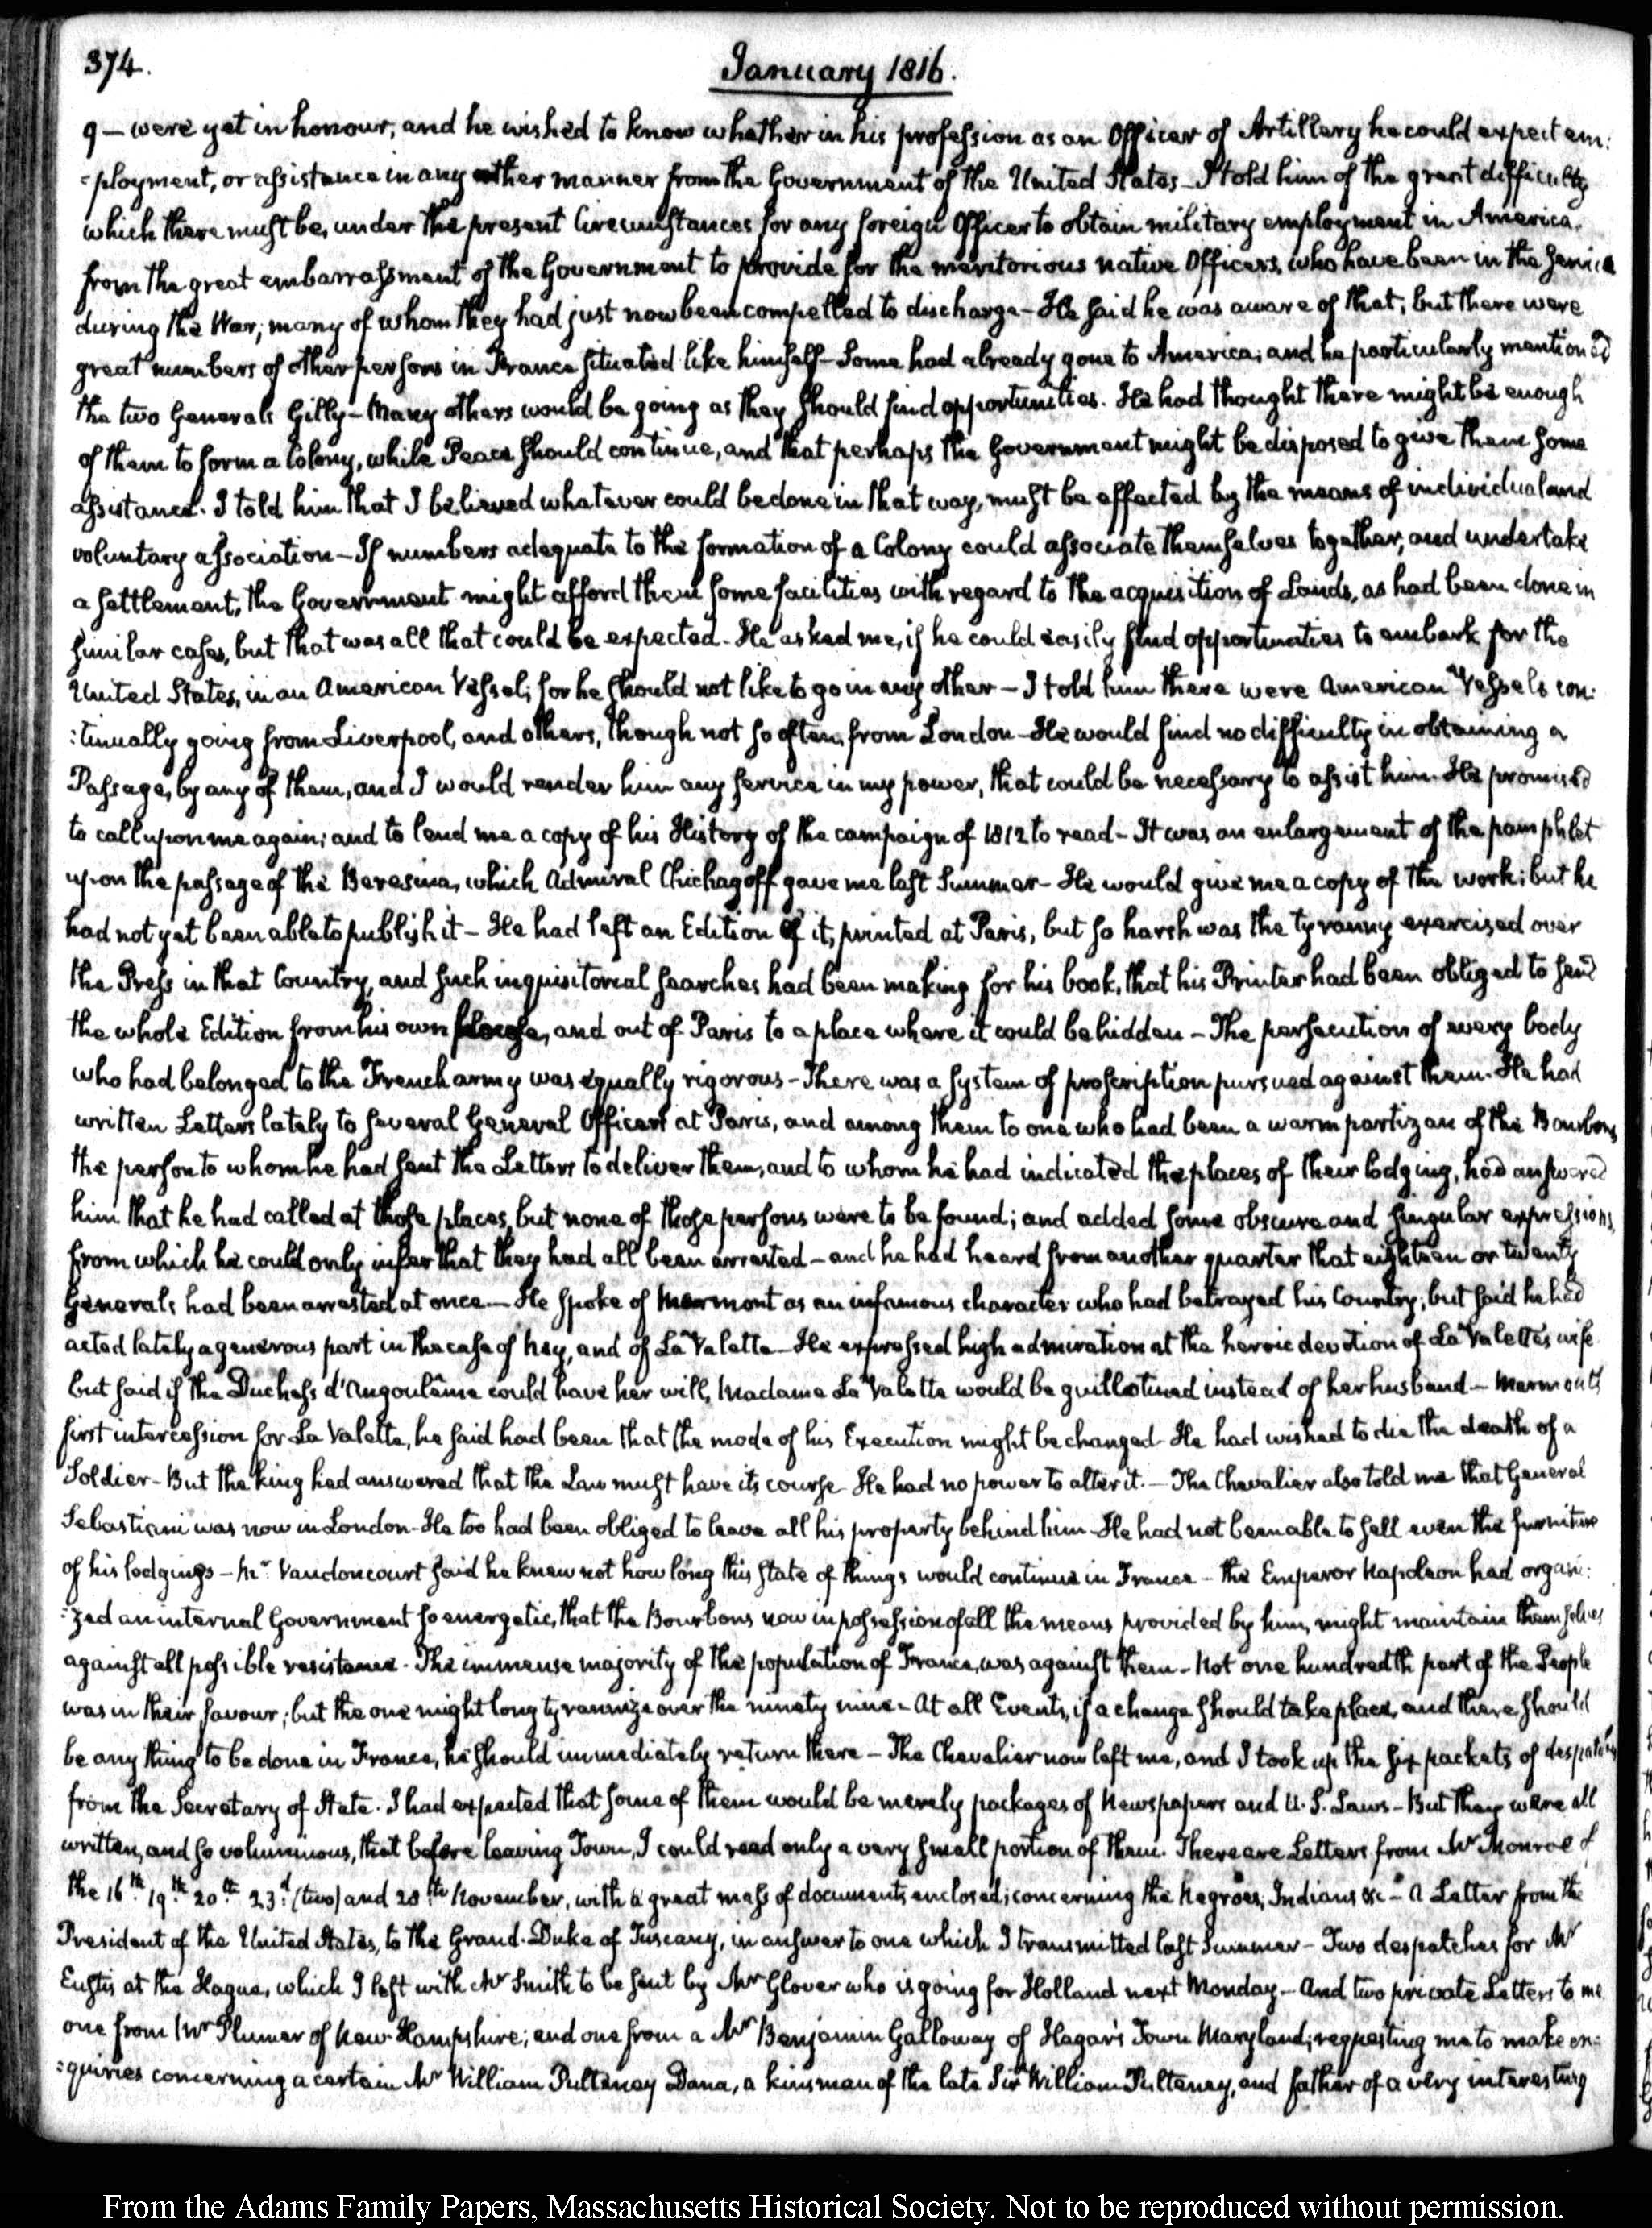 374.
January 1816.
9 — were yet in honour, and he wished to know whether in his profession as an Officer of Artillery he could expect em:
:ployment, or assistance in any other manner from the Government of the United States — I told him of the great difficulty
which there must be, under the present Circumstances for any foreign Officer to obtain military employment in America,
from the great embarrassment of the Government to provide for the meritorious native Officers, who have been in the service
during the War; many of whom they had just now been compelled to discharge — He said he was aware of that; but there were
great numbers of other persons in France situated like himself — Some had already gone to America; and he particularly mentioned
the two Generals Gilly — Many others would be going as they should find opportunities. He had thought there might be enough
of them to form a Colony, while Peace should continue, and that perhaps the Government might be disposed to give them some
assistance. I told him that I believed whatever could be done in that way, must be effected by the means of individual and
voluntary association — If numbers adequate to the formation of a Colony could associate themselves together, and undertake
a settlement, the Government might afford them some facilities with regard to the acquisition of Lands, as had been done in
similar cases, but that was all that could be expected — He asked me, if he could easily find opportunities to embark for the
United States, in an American Vessel; for he should not like to go in any other — I told him there were American Vessels con:
:tinually going from Liverpool, and others, though not so often, from London — He would find no difficulty in obtaining a
Passage, by any of them, and I would render him any service in my power, that could be necessary to assist him. He promised
to call upon me again; and to lend me a copy of his History of the campaign of 1812 to read — It was an enlargement of the pamphlet
upon the passage of the Beresina, which Admiral Chichagoff gave me last Summer — He would give me a copy of the work; but he
had not yet been able to publish it — He had left an Edition of it, printed at Paris, but so harsh was the tyranny exercised over
the Press in that Country, and such inquisitorial searches had been making for his book, that his Printer had been obliged to send
the whole Edition from his own house, and out of Paris to a place where it could be hidden — The persecution of every body
who had belonged to the French army was equally rigorous — There was a system of proscription pursued against them. He had
written Letters lately to several General Officers at Paris, and among them to one who had been a warm partizan of the Bourbons
the person to whom he had sent the Letters to deliver them, and to whom he had indicated the places of their lodging, had answered
him that he had called at those places, but none of those persons were to be found; and added some obscure and singular expressions,
from which he could only infer that they had all been arrested — and he had heard from another quarter that eighteen or twenty
Generals had been arrested at once — He spoke of Marmont as an infamous character who had betrayed his Country; but said he had
acted lately a generous part in the case of Ney, and of La Valette — He expressed high admiration at the heroic devotion of La Valette's wife
but said if the Duchess d'Angoulême could have her will, Madame La Valette would be guillotined instead of her husband — Marmont's
first intercession for La Valette, he said had been that the mode of his Execution might be changed — He had wished to die the death of a
Soldier — But the king had answered that the Law must have its course — He had no power to alter it. — The Chevalier also told me that General
Sebastiani was now in London — He too had been obliged to leave all his property behind him — He had not been able to sell even the furniture
of his lodgings — Mr. Vaudoncourt said he knew not how long this state of things would continue in France — the Emperor Napoleon had organi:
:zed an internal Government so energetic, that the Bourbons now in possession of all the means provided by him, might maintain themselves
against all possible resistance. The immense majority of the population of France, was against them — Not one hundredth part of the People
was in their favour; but the one might long tyrannize over the ninety nine — At all Events, if a change should take place, and there should
be any thing to be done in France, he should immediately return there — The Chevalier now left me, and I took up the six packets of despatches
from the Secretary of State. I had expected that some of them would be merely packages of Newspapers and U.S. Laws — But they were all
written, and so voluminous, that before leaving Town, I could read only a very small portion of them. There are Letters from Mr Monroe of
the 16th. 19th. 20th. 23d. (two) and 28th November, with a great mass of documents enclosed; concerning the Negroes, Indians &c — A Letter from the
President of the United States, to the Grand-Duke of Tuscany, in answer to one which I transmitted last Summer — Two despatches for Mr
Eustis at the Hague, which I left with Mr Smith to be sent by Mr Glover who is going for Holland next Monday — And two private Letters to me
one from Mr Plumer of New-Hampshire; and one from a Mr Benjamin Galloway of Hagar's Town Maryland; requesting me to make en:
:quiries concerning a certain Mr William Pulteney Dana, a kinsman of the late Sir William Pulteney, and father of a very interesting
From the Adams Family Papers, Massachusetts Historical Society. Not to be reproduced without permission.